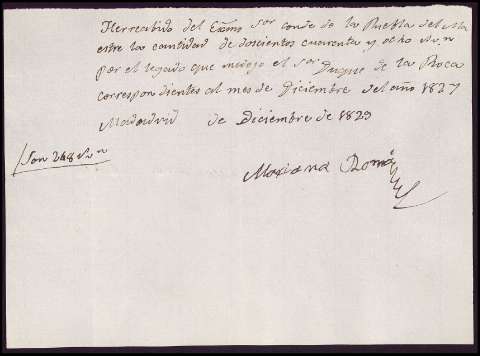 He rrecibido del Exmo sor conde de la Puebla del Ma
estre la cantidad de doscientos cuarenta y ocho rs vn
por el legado que me dejo el sor Duque de la Roca
correspondientes al mes de Diciembre del año 1827
Madadrid de Diciembre de 1829
Son 248 rs vn
Mariana Romá